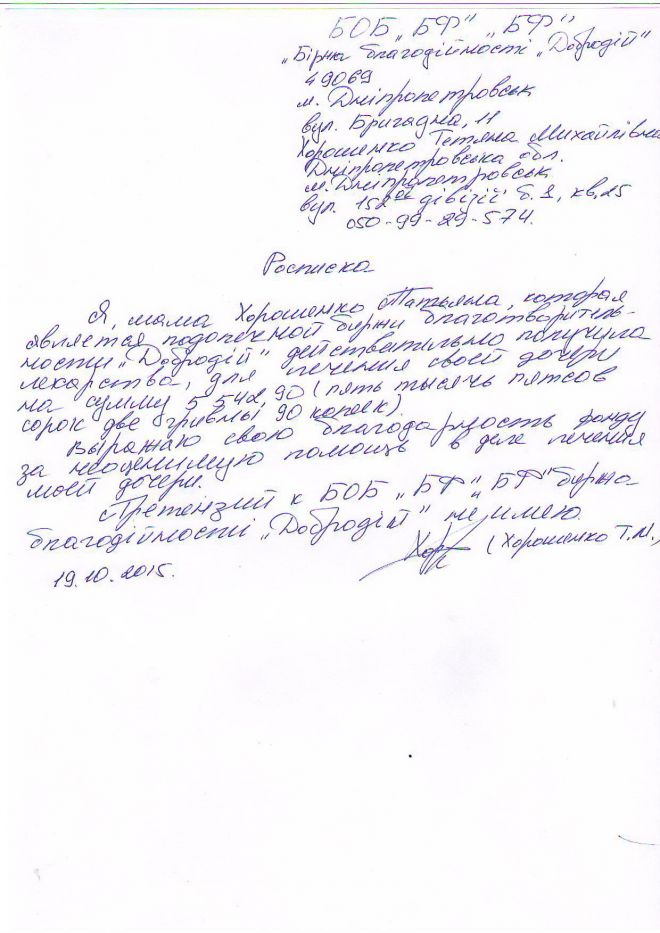 БОБ „БФ" „БФ"
„Біржа благодійності „Добродій"
49069
м. Дніпропетровськ
вул. Бригадна, 11
Хорошенко Тетяна Михайлівна
Дніпропетровська обл.
м. Дніпропетровськ
вул. 152ої дівізії б. 1, кв, 25
050-99-29-574.
Росписка
Я, мама Хорошенко Татьяна, которая
является подопечной биржи благотворитель-
ности „Добродій" действительно получила
лекарства, для лечения своей дочери
на сумму 5 542, 90 (пять тысяч пятсов
сорок две гривны 90 копеек).
Выражаю свою благодарность фонду
за неоценимую помощь в деле лечения
моей дочери.
Претензий к БОБ „БФ" „БФ" биржа
благодійності „Добродій" не имею.
Хор (Хорошенко Т.М.)
19.10.2015.